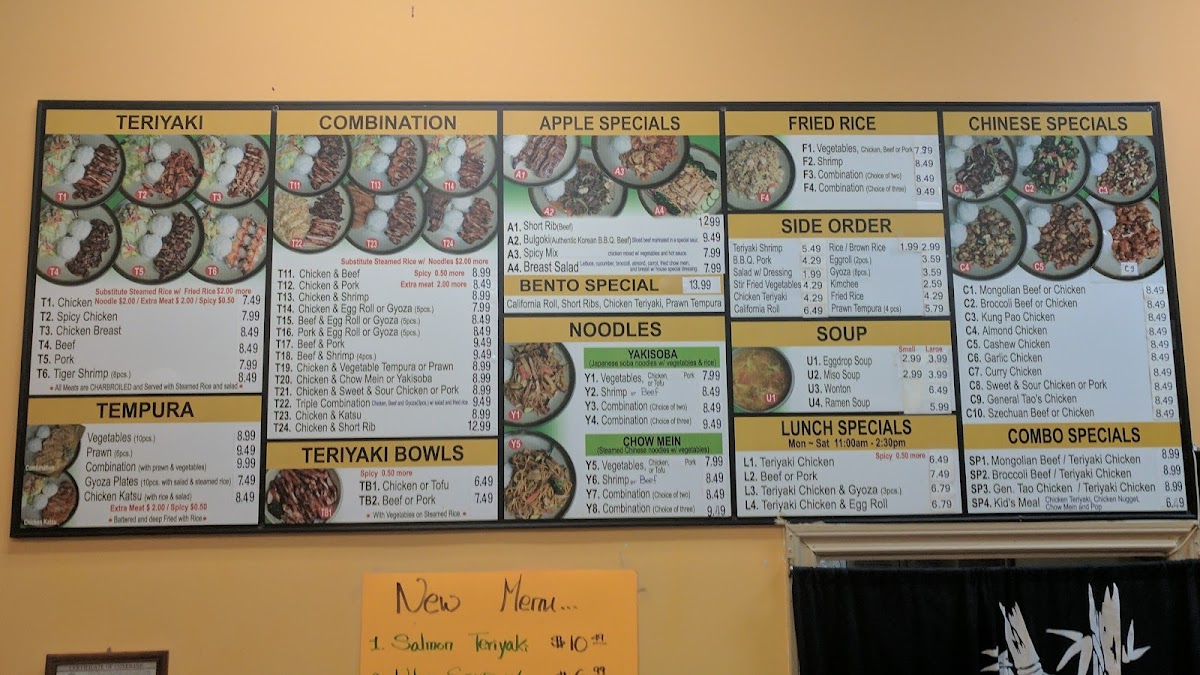 TERIYAKI
T1
T2
T3
T4
T5
T6
Substitute Steamed Rice w/ Fried Rice $2.00 more
Noodle $2.00 / Extra Meat $ 2.00 / Spicy $0.50
T1. Chicken 7.49
T2. Spicy Chicken 7.99
T3. Chicken Breast 8.49
T4. Beef 8.49
T5. Pork 7.99
T6. Tiger Shrimp (6pcs.) 8.49
All Meats are CHARBROILED and Served with Steamed Rice and salad
TEMPURA
Combination
Chicken Katsu
Vegetables (10pcs.) 8.99
Prawn (6pcs.) 9.49
Combination (with prawn & vegetables) 9.99
Gyoza Plates (10pcs. with salad & steamed rice) 7.49
Chicken Katsu (with rice & salad) 8.49
Extra Meat $ 2.00 / Spicy $0.50
Battered and deep Fried with Rice
COMBINATION
T11
T13
T14
T22
T23
T24
Substitute Steamed Rice w/ Noodles $2.00 more
Spicy 0.50 more
Extra meat 2.00 more
T11. Chicken & Beef 8.99
T12. Chicken & Pork 8.49
T13. Chicken & Shrimp 8.99
T14. Chicken & Egg Roll or Gyoza (5pcs.) 7.99
T15. Beef & Egg Roll or Gyoza (5pcs.) 8.49
T16. Pork & Egg Roll or Gyoza (5pcs.) 8.49
T17. Beef & Pork 9.49
T18. Beef & Shrimp (4pcs.) 9.49
T19. Chicken & Vegetable Tempura or Prawn 8.99
T20. Chicken & Chow Mein or Yakisoba 8.99
T21. Chicken & Sweet & Sour Chicken or Pork 8.99
T22. Triple Combination Chicken, Beef and Gyoza(3pcs.) w/ salad and fried rice 9.49
T23. Chicken & Katsu 8.99
T24. Chicken & Short Rib 12.99
TERIYAKI BOWLS
TB1
Spicy 0.50 more
TB1. Chicken or Tofu 6.49
TB2. Beef or Pork 7.49
With Vegetables on Steamed Rice.
APPLE SPECIALS
A1
A2
A3
A4
A1. Short Rib(Beef) 12.99
A2. Bulgoki(Authentic Korean B.B.Q. Beef) Sliced beef marinated in a special sauce. 9.49
A3. Spicy Mix chicken mixed w/ vegetables and hot sauce. 7.99
A4. Breast Salad Lettuce, cucumber, broccoli, almond, carrot, fried chow mein, and breast w/ house special dressing. 7.99
BENTO SPECIAL 13.99
California Roll, Short Ribs, Chicken Teriyaki, Prawn Tempura
NOODLES
Y1
YAKISOBA
(Japanese soba noodles w/ vegetables & rice)
Y1. Vegetables, Chicken, Pork or Tofu 7.99
Y2. Shrimp or Beef 8.49
Y3. Combination (Choice of two) 8.49
Y4. Combination (Choice of three) 9.49
Y5
CHOW MEIN
(Steamed Chinese noodles w/ vegetables)
Y5. Vegetables, Chicken, Pork or Tofu 7.99
Y6. Shrimp or Beef 8.49
Y7. Combination (Choice of two) 8.49
Y8. Combination (Choice of three) 9.49
FRIED RICE
F4
F1. Vegetables, Chicken, Beef or Pork 7.79
F2. Shrimp 8.49
F3. Combination (Choice of two) 8.49
F4. Combination (Choice of three) 9.49
SIDE ORDER
Teriyaki Shrimp 5.49 Rice / Brown Rice 1.99 2.99
B.B.Q. Pork 4.29 Eggroll (2pcs.) 3.59
Salad w/ Dressing 1.99 Gyoza (6pcs.) 3.59
Stir Fried Vegetables 4.29 Kimchee 2.59
Chicken Teriyaki 4.29 Fried Rice 4.29
California Roll 6.49 Prawn Tempura (4 pcs) 5.79
SOUP
U1
Small Large
U1. Eggdrop Soup 2.99 3.99
U2. Miso Soup 2.99 3.99
U3. Wonton 6.49
U4. Ramen Soup 5.99
LUNCH SPECIALS
Mon ~ Sat 11:00am - 2:30pm
Spicy 0.50 more
L1. Teriyaki Chicken 6.49
L2. Beef or Pork 7.49
L3. Teriyaki Chicken & Gyoza (3pcs.) 6.79
L4. Teriyaki Chicken & Egg Roll 6.79
CHINESE SPECIALS
C1
C2
C3
C4
C5
C9
C1. Mongolian Beef or Chicken 8.49
C2. Broccoli Beef or Chicken 8.49
C3. Kung Pao Chicken 8.49
C4. Almond Chicken 8.49
C5. Cashew Chicken 8.49
C6. Garlic Chicken 8.49
C7. Curry Chicken 8.49
C8. Sweet & Sour Chicken or Pork 8.49
C9. General Tao's Chicken 8.49
C10. Szechuan Beef or Chicken 8.49
COMBO SPECIALS
SP1. Mongolian Beef / Teriyaki Chicken 8.99
SP2. Broccoli Beef / Teriyaki Chicken 8.99
SP3. Gen. Tao Chicken / Teriyaki Chicken 8.99
SP4. Kid's Meal Chicken Teriyaki, Chicken Nugget, Chow Mein and Pop 6.49
New Menu...
1. Salmon Teriyaki $10